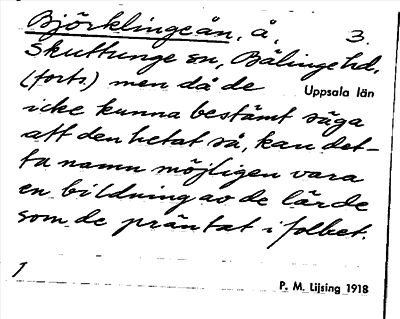 Björklingeån, å, 3.
Skuttunge sn, Bälinge hd,
(forts.) men då de Uppsala län
icke kunna bestämt säga
att den hetat så, kan det-
ta namn möjligen vara
en bildning av de lärde
som de präntat i folket.
1 P. M. Lijsing 1918